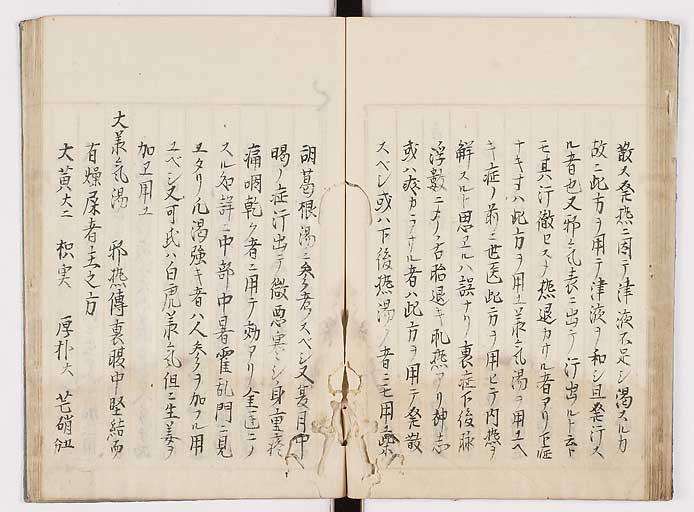 散ス発熱ニ因テ津液不足シ渇スルカ
故ニ此方ヲ用テ津液ヲ和シ且発汗ス
ル者也又邪気表ニ出テ汗出ルト云
モ其汗徹セスノ熱退カサル者アリ下症
ナキ寸ハ此方ヲ用ユ承気湯ヲ用ユヘ
キ症ノ前ニ世医此方ヲ用ヒテ内熱ヲ
解スルト思ヱルハ誤ナリ裏症下後脉
浮数ニノ舌胎退キ肌熱アリ神志
或ハ カラサル者ハ此方ヲ用テ発散
スベシ或ハ下後熱渇ノ者ニモ用ユ柴
胡葛根湯ニ 考スベシ又夏月中
暍ノ症汗出テ微悪寒シ身重疼
痛咽乾ク者ニ用テ効アリ金匱ニノ
スル処詳ニ中部中暑霍乱門ニ見
ヱタリ凡渇強キ者ハ人参ヲ加フル用
ユベシ又可氏ハ白虎承気但ニ生姜ヲ
加ヱ用ユ
大承気湯 邪熱傳裏腹中堅結而
有燥屎者主之方
大黄大二 枳実 厚朴大 芒硝